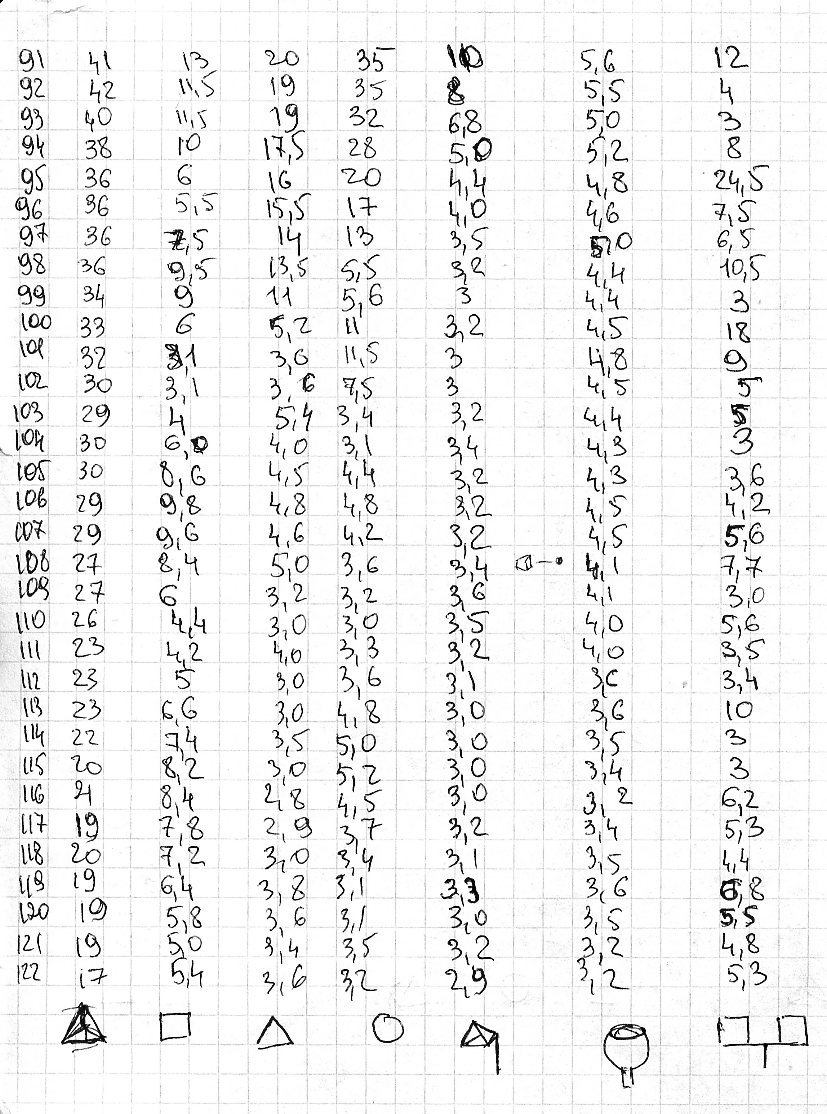 91 41 13 20 35 10 5,6 12
92 42 11,5 19 35 8 5,5 4
93 40 11,5 19 32 6,8 5,0 3
94 38 10 17,5 28 5,0 5,2 8
95 36 6 16 20 4,4 4,8 24,5
96 36 5,5 15,5 17 4,0 4,6 7,5
97 36 7,5 14 13 3,5 5,0 6,5
98 36 9,5 13,5 5,5 3,2 4,4 10,5
99 34 9 11 5,6 3 4,4 3
100 33 6 5,2 11 3,2 4,5 18
101 32 3,1 3,6 11,5 3 4,8 9
102 30 3,1 3,6 7,5 3 4,5 5
103 29 4 5,4 3,4 3,2 4,4 5
104 30 6,0 4,0 3,1 3,4 4,3 3
105 30 8,6 4,5 4,4 3,2 4,3 3,6
106 29 9,8 4,8 4,8 3,2 4,5 4,2
107 29 9,6 4,6 4,2 3,2 4,5 5,6
108 27 8,4 5,0 3,6 3,4 4,1 7,7
109 27 6 3,2 3,2 3,6 4,1 3,0
110 26 4,4 3,0 3,0 3,5 4,0 5,6
111 23 4,2 4,0 3,3 3,2 4,0 3,5
112 23 5 3,0 3,6 3,1 3,4
113 23 6,6 3,0 4,8 3,0 3,6 10
114 22 7,4 3,5 5,0 3,0 3,5 3
115 20 8,2 3,0 5,2 3,0 3,4 3
116 21 8,4 2,8 4,5 3,0 3,2 6,2
117 19 7,8 2,9 3,7 3,2 3,4 5,3
118 20 7,2 3,0 3,4 3,1 3,5 4,4
119 19 6,4 3,8 3,1 3,3 3,6 6,8
120 19 5,8 3,6 3,1 3,0 3,5 5,5
121 19 5,0 3,4 3,5 3,2 3,2 4,8
122 17 5,4 3,6 3,2 2,9 3,2 5,3